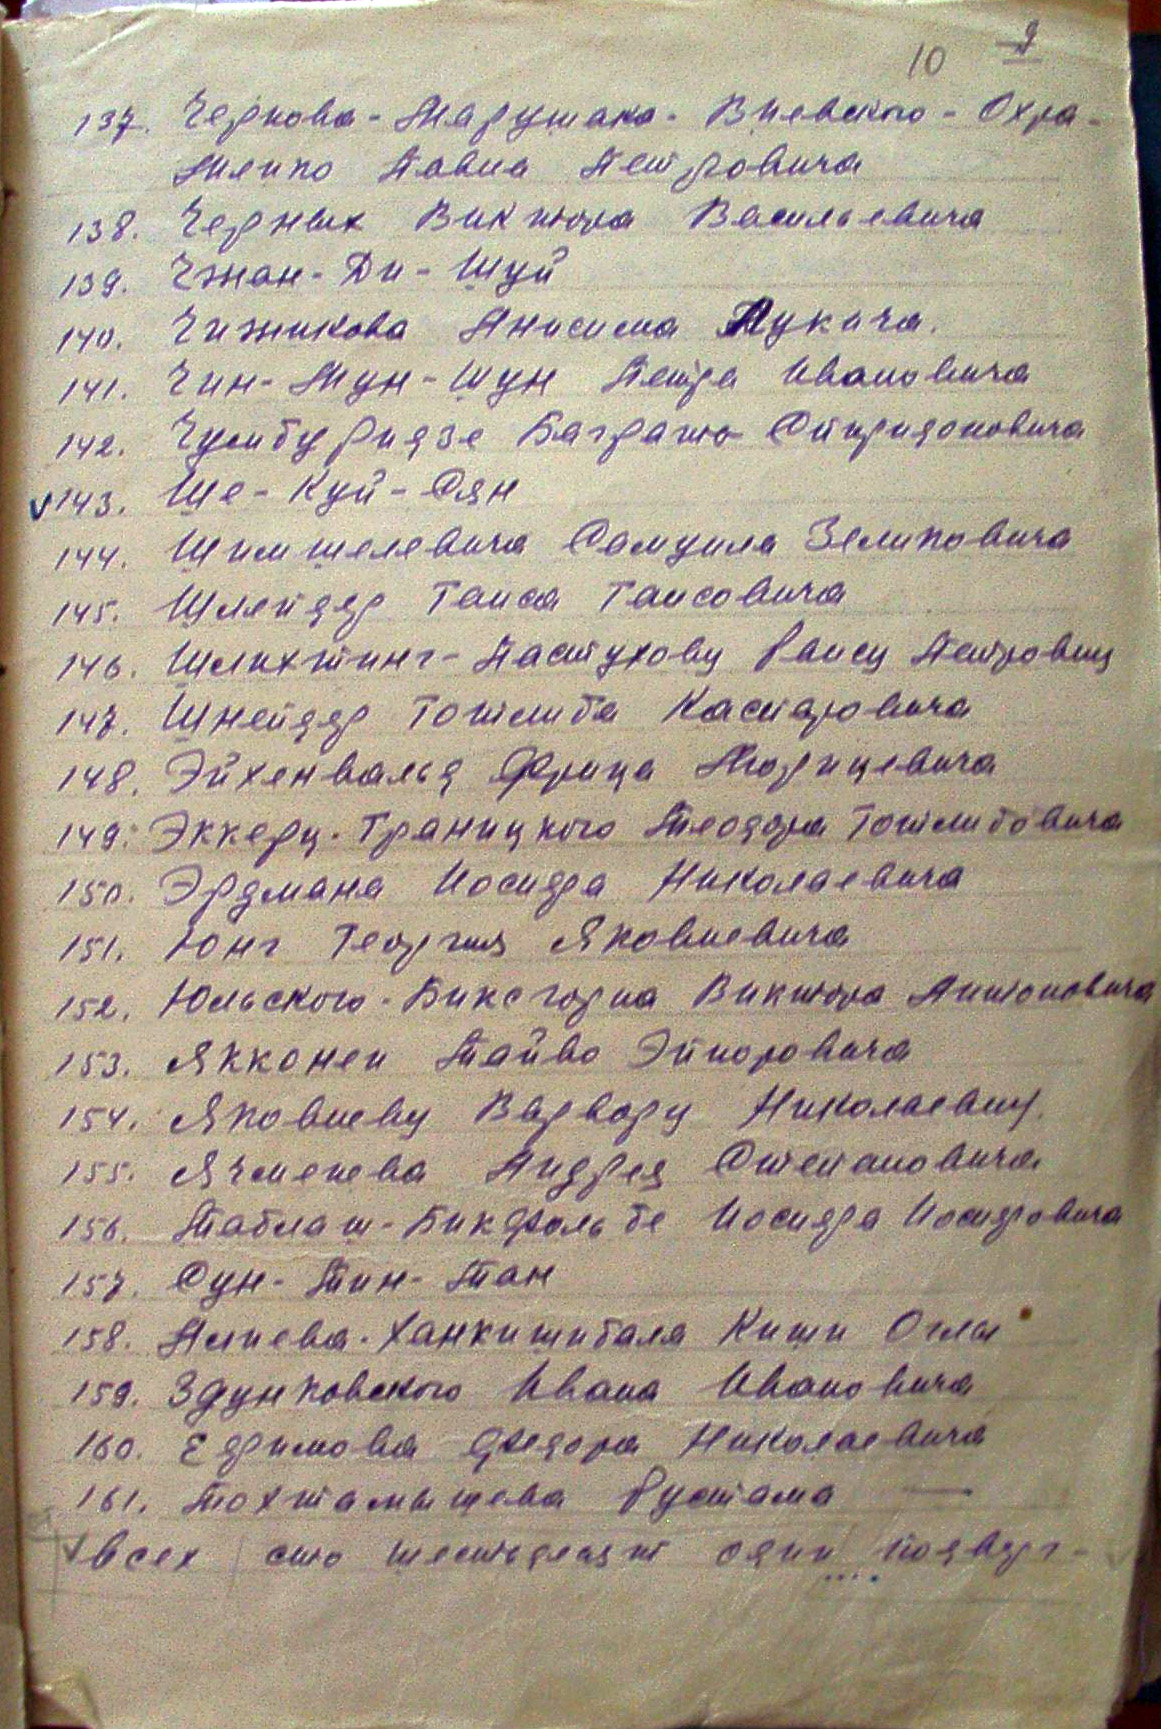 10 9
137. Чернова-Марушака-Виевского-Охра-
менко Павла Петровича
138. Черных Виктора Васильевича
139. Чжан-Ди-Шуй
140. Чижикова Анисима Лукича.
141. Чин-Мун-Шун Петра Ивановича
142. Чумбуридзе Баграта Спиридоновича
143. Ше-Куй-Сян
144. Шимшелевича Самуила Зеликовича
145. Шлейдер Ганса Гансовича
146. Шлихтинг-Пастухову Раису Петровну
147. Шнейдер Готлиба Каспаровича
148. Эйхенвальд Фрица Морицевича
149. Эккерц-Границкого Теодора Готлибовича
150. Эрдмана Иосифа Николаевича
151. Юнг Георгия Яковлевича
152. Юльского-Биксгорна Виктора Антоновича
153. Якконен Тайво Эйноровича
154. Яковлеву Варвару Николаевну.
155. Ячменева Андрея Степановича
156. Таблаш-Бикфольве Иосифа Иосифовича
157. Сун-Тин-Тан
158. Алиева-Ханкишибаля Киши Оглы
159. Здунковского Ивана Ивановича
160. Ефимова Федора Николаевича
161. Тохтамышева Рустама —
всех сто шестьдесят один подверг-